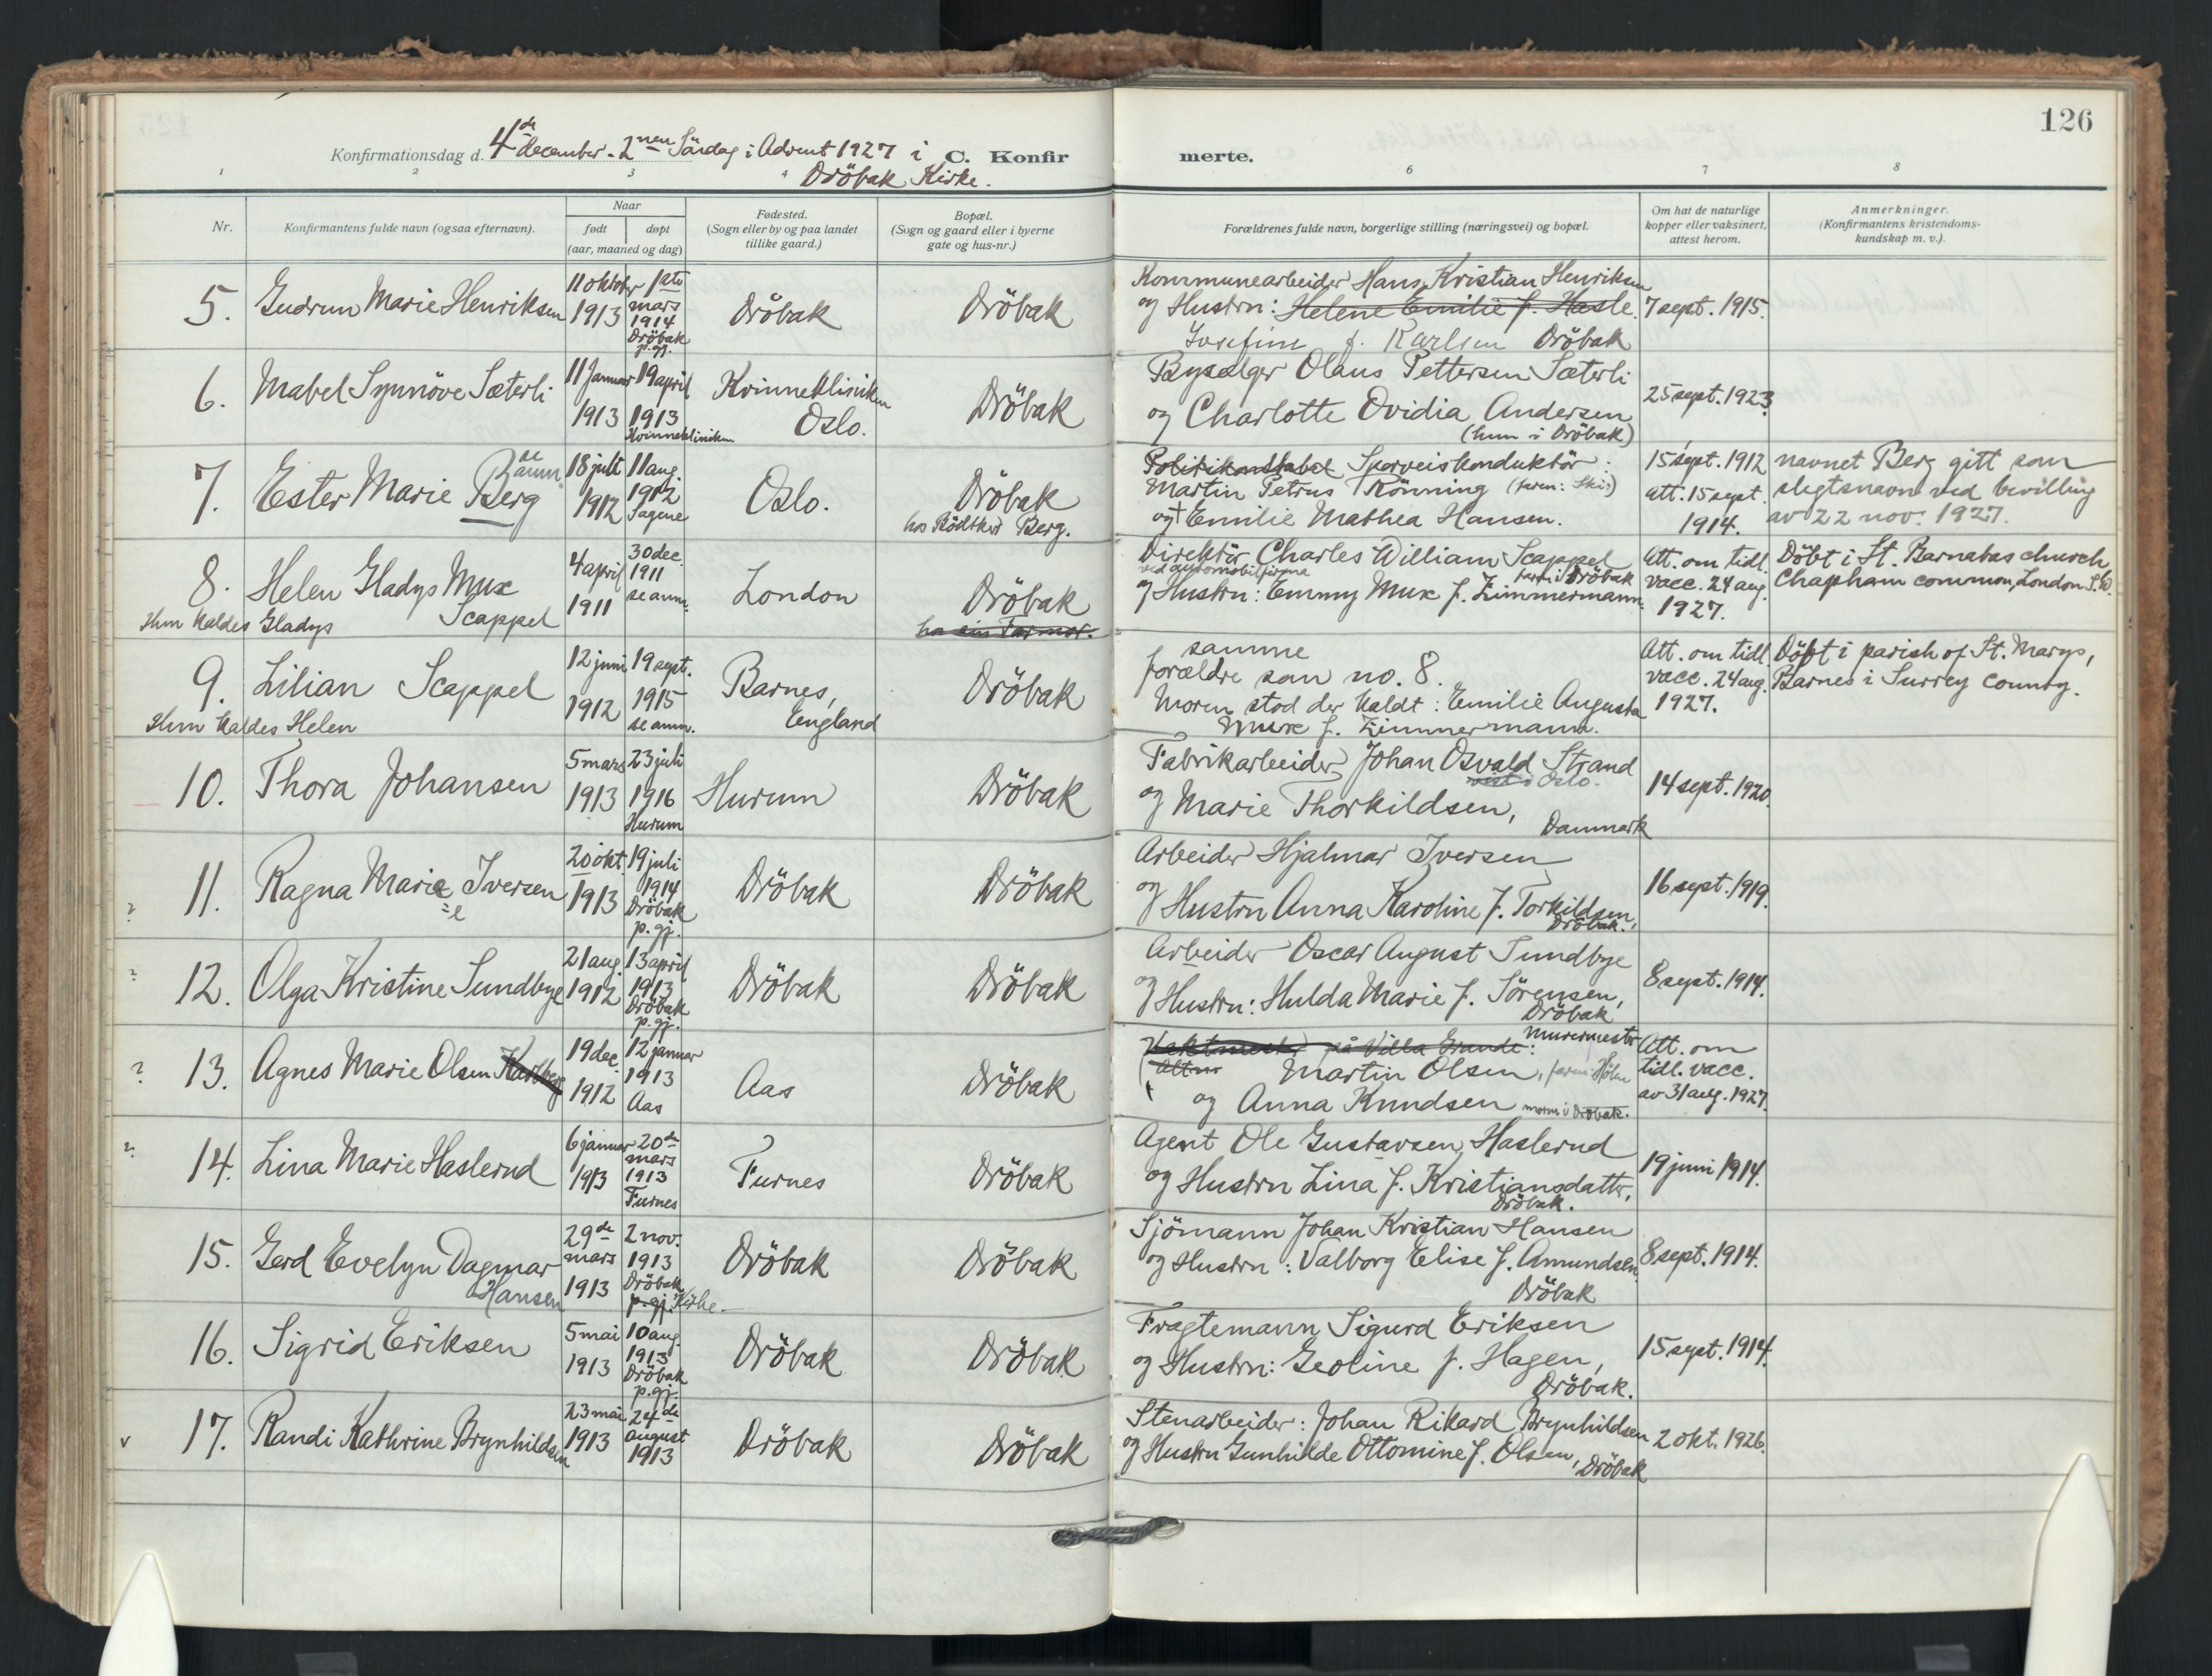 126
Konfirmationsdag d. 4de december. 2nen Søndag i Advent 1927 i C. Konfir merte.
Dröbak Kirke.
1 2 3 4 6 7 8
Nr.
Konfirmantens fulde navn (ogsaa efternavn).
Naar
født døpt
(aar, maaned og dag)
Fødested.
(Sogn eller by og paa landet
tillike gaard.)
Bopæl.
(Sogn og gaard eller i byerne
gate og hus-nr.)
Forældrenes fulde navn, borgerlige stilling (næringsvei) og bopæl.
Om hat de naturlige
kopper eller vaksinert,
attest herom.
Anmerkninger.
(Konfirmantens kristendoms-
kundskap m. v.).
5. Gudrun Marie Henriksen
11 oktober
1913
1ste
mars
1914
Dröbak
p.gj.
Dröbak
Dröbak
Kommunearbeider Hans Kristian Henriksen
og Hustru: Helene Emilie f. Hasle.
Josefine f. Karlsen Dröbak
7 sept. 1915.
6. Mabel Synnöve Sæterli
11 Januar
1913
19 april
1913
Kvinneklinikken
Kvinneklinikken
Oslo.
Dröbak
Byselger Olaus Pettersen Sæterli
og Charlotte Ovidia Andersen
(hun i Dröbak)
25 sept. 1923.
7. Ester Marie Berg
se
anm.
18 juli
1912
11 aug.
1912
Sagene
Oslo.
Dröbak
hos Bödtker Berg.
Politikonstabel Sporveiskonduktör:
Martin Petrus Rönning (faren: Ski)
og Emilie Mathea Hansen.
15 sept. 1912
att. 15 sept.
1914.
navnet Berg gitt som
slegtsnavn ved bevilling
av 22 nov. 1927.
8. Helen Gladys Mux
Scappel
Hun kaldes Gladys
4 april
1911
30 dec.
1911
se anm.
London
Dröbak
hos sin Farmor.
Direktör Charles William Scappel
ved automobilfirma
farm i Dröbak
og Hustru: Emmy Mux f. Zimmermann.
Att. om tidl.
vacc. 24 aug.
1927.
Döbt i St. Barnabas church,
Chapham common, London S.W.
9. Lilian Scappel
Hun kaldes Helen
12 juni
1912
19 sept.
1915
se anm.
Barnes,
England
Dröbak
samme
forældre som no. 8.
Moren stod der kaldt: Emilie Augusta
Mux f. Zimmermann.
Att. om tidl.
vacc. 24 aug.
1927.
Döbt i parish of St. Marys,
Barnes i Surrey County.
10. Thora Johansen
5 mars
1913
23 juli
1916
Hurum
Hurum
Dröbak
Fabrikarbeider Johan Osvald Strand
vist i Oslo.
og Marie Thorkildsen,
Danmark
14 sept. 1920.
? 11. Ragna Marie Iversen
= e
20 okt.
1913
19 juli
1914
Dröbak
p.gj.
Dröbak
Dröbak
Arbeider Hjalmar Iversen
og Hustru Anna Karoline f. Torkildsen,
Dröbak.
16 sept. 1919.
? 12. Olga Kristine Sundbye
21 aug.
1912
13 april
1913
Dröbak
p.gj.
Dröbak
Dröbak
Arbeider Oscar August Sundbye
og Hustru: Hulda Marie f. Sörensen,
Dröbak
8 sept. 1914.
? 13. Agnes Marie Olsen Karlberg
19 dec.
1912
12 januar
1913
Aas
Aas
Dröbak
Vaktmester på Villa Grande: Murermester
Martin Olsen, faren: Hölen
og Anna Knudsen moren i Dröbak.
Att. om
tidl. vacc.
av 31 aug. 1927.
? 14. Lina Marie Haslerud
6 januar
1913
20de
mars
1913
Furnes
Furnes
Dröbak
Agent Ole Gustavsen Haslerud
og Hustru Lina f. Kristiansdatter,
Dröbak.
19 juni 1914.
15. Gerd Evelyn Dagmar
Hansen
29de
mars
1913
2 nov.
1913
Dröbak
p.gj. Kirke.
Dröbak
Dröbak
Sjömann Johan Kristian Hansen
og Hustru: Valborg Elise f. Amundsen.
Dröbak
8 sept. 1914.
16. Sigrid Eriksen
5 mai
1913
10 aug.
1913
Dröbak
p.gj.
Dröbak
Dröbak.
Fragtemann Sigurd Eriksen
og Hustru: Geoline f. Hagen,
Dröbak.
15 sept. 1914.
v 17. Randi Kathrine Brynhildsen
23 mai
1913
24de
august
1913
Dröbak
Dröbak
Stenarbeider: Johan Rikard Brynhildsen
og Hustru Gunhilde Ottomine f. Olsen,
Dröbak
2 okt. 1926.